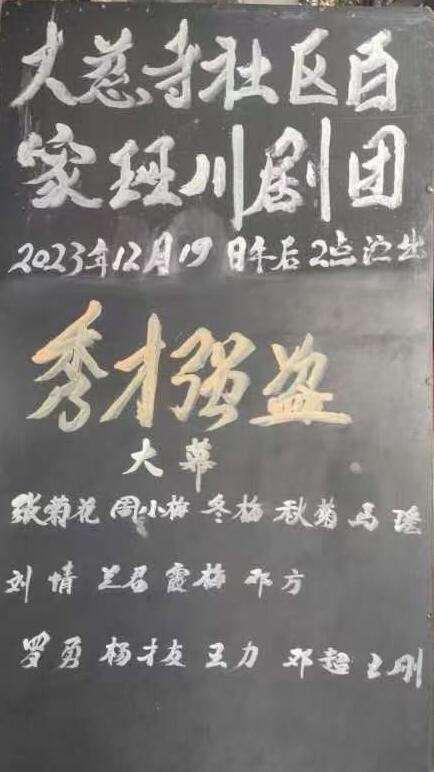 大慈寺社区百
家班川剧团
2023年12月19日午后2点演出
秀才强盗
大幕
张菊花 周小梅 冬梅 秋菊 马瑶
刘情 兰君 霞梅 邓方
罗勇 杨才友 王力 邓超 王刚